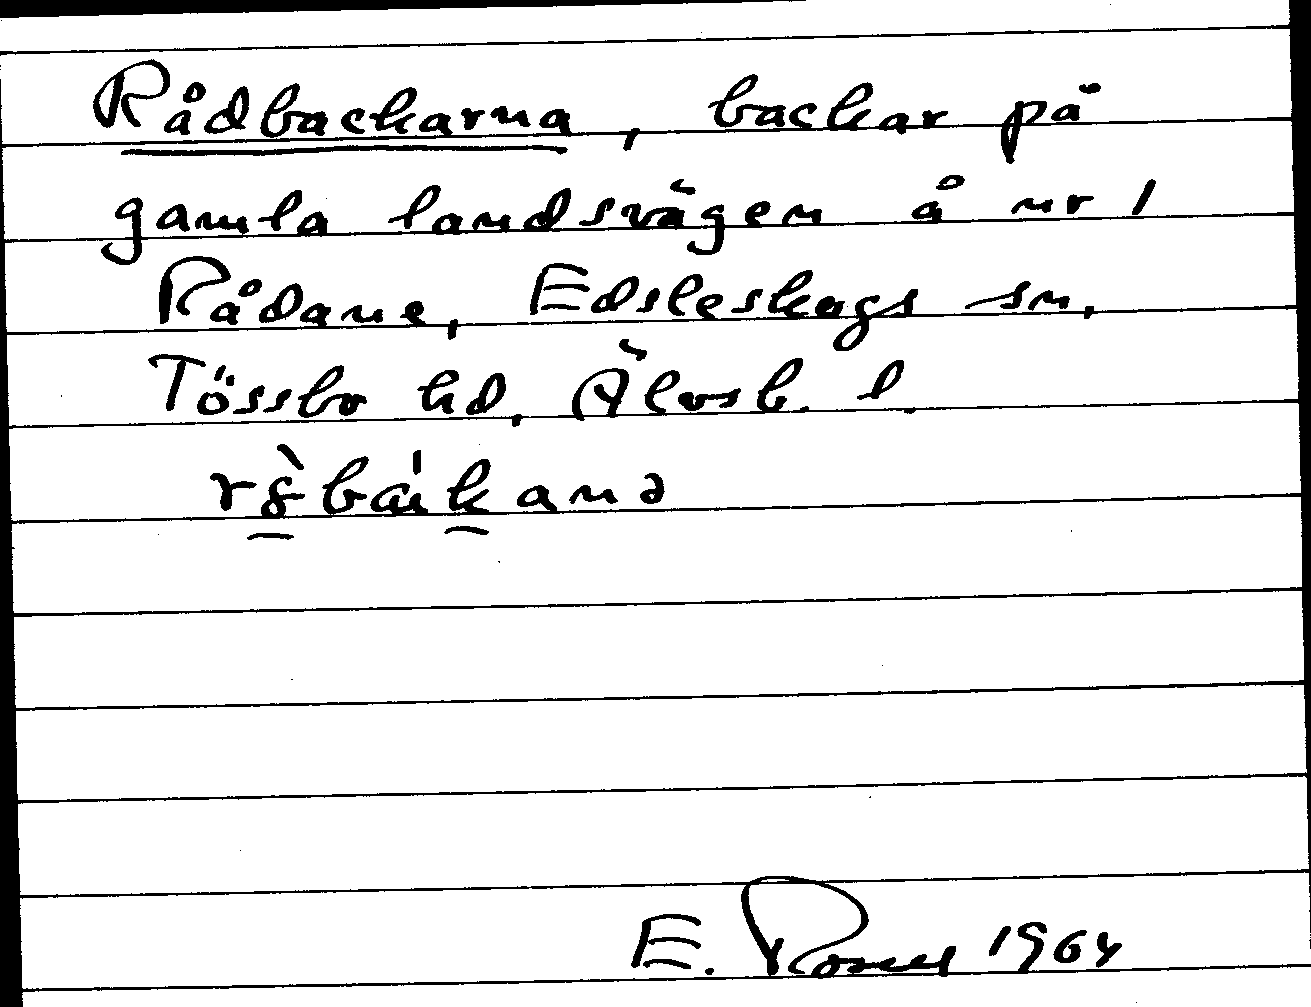 Rådbackarna, backar på
gamla landsvägen å nr 1
Rådane, Edsleskogs sn,
Tössbo hd, Älvsb. l.
E. 1964